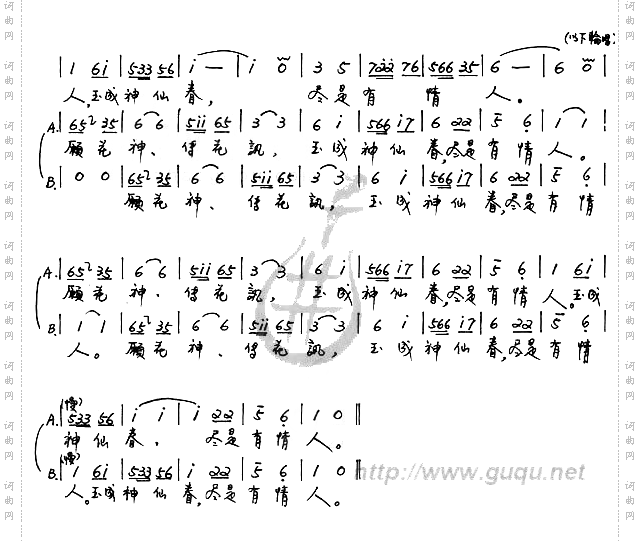 (以下輪唱)
| 1 6i | 533 56 | i — | i 0 | 3 5 | 722 76 | 566 35 | 6 — | 6 0 |
人，玉成神仙眷， 尽是有情人。
A. | 65² 35 | 6 6 | 5ii 65 | 3 3 | 6 i | 566 i7 | 6 22 | 5 6 | 1 1 |
願花神、傳花訊，玉成神仙眷，尽是有情人。
B. | 0 0 | 65² 35 | 6 6 | 5ii 65 | 3 3 | 6 i | 566 i7 | 6 22 | 5 6 |
願花神、傳花訊，玉成神仙眷，尽是有情
A. | 65² 35 | 6 6 | 5ii 65 | 3 3 | 6 i | 566 i7 | 6 22 | 5 6 | 1 6i |
願花神、傳花訊，玉成神仙眷，尽是有情人。玉成
B. | 1 1 | 65² 35 | 6 6 | 5ii 65 | 3 3 | 6 i | 566 i7 | 6 22 | 5 6 |
人。願花神、傳花訊，玉成神仙眷，尽是有情
(慢)
A. | 533 56 | i i | i 22 | 5 6 | 1 0 ||
神仙眷， 尽是有情人。
(慢)
B. | 1 6i | 533 56 | i 22 | 5 6 | 1 0 ||
人。玉成神仙眷，尽是有情人。
http://www.guqu.net
词曲网